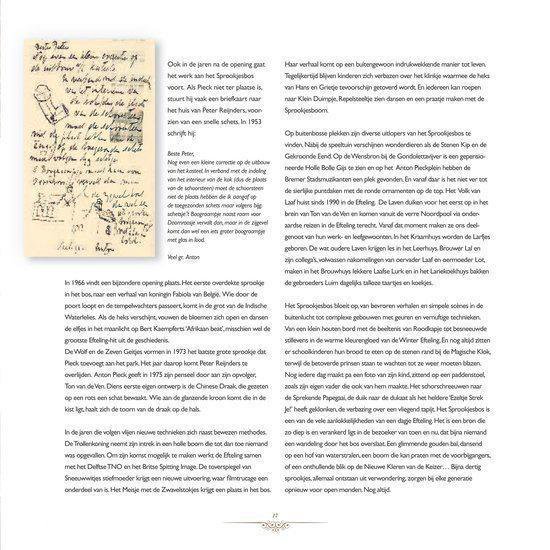 Beste Peter,
Ook in de jaren na de opening gaat
het werk aan het Sprookjesbos
voort. Als Pieck niet ter plaatse is,
stuurt hij vaak een briefkaart naar
het huis van Peter Reijnders, voor-
zien van een snelle schets. In 1953
schrijft hij:
Beste Peter,
Nog even een kleine correctie op de uitbouw
van het kasteel. In verband met de indeling
van het interieur van de kok (dus de plaats
van de schoorsteen) moet de schoorsteen
niet de plaats hebben die ik aangaf op
de toegezonden schets maar volgens bijg.
schetsje. 't Boograampje naast raam voor
Doornroosje vervalt dan, maar in de zijgevel
komt dan wel een iets groter boograampje
met glas in lood.
Veel gr. Anton
In 1966 vindt een bijzondere opening plaats. Het eerste overdekte sprookje
in het bos, naar een verhaal van koningin Fabiola van België. Wie door de
poort loopt en de tempelwachters passeert, komt in de grot van de Indische
Waterlelies. Als de heks verschijnt, vouwen de bloemen zich open en dansen
de elfjes in het maanlicht op Bert Kaempferts 'Afrikaan beat', misschien wel de
grootste Efteling-hit uit de geschiedenis.
De Wolf en de Zeven Geitjes vormen in 1973 het laatste grote sprookje dat
Pieck toevoegt aan het park. Het jaar daarop komt Peter Reijnders te
overlijden. Anton Pieck geeft in 1975 zijn penseel door aan zijn opvolger,
Ton van de Ven. Diens eerste eigen ontwerp is de Chinese Draak, die gezeten
op een rots een schat bewaakt. Wie aan de glanzende kroon komt die in de
kist ligt, haalt zich de toorn van de draak op de hals.
In de jaren die volgen vlijen nieuwe technieken zich naast bewezen methodes.
De Trollenkoning neemt zijn intrek in een holle boom die tot dan toe niemand
was opgevallen. Om zijn komst mogelijk te maken werkt de Efteling samen
met het Delftse TNO en het Britse Spitting Image. De toverspiegel van
Sneeuwwitjes stiefmoeder krijgt een nieuwe uitvoering, waar filmtrucage een
onderdeel van is. Het Meisje met de Zwavelstokjes krijgt een plaats in het bos.
Haar verhaal komt op een buitengewoon indrukwekkende manier tot leven.
Tegelijkertijd blijven kinderen zich verbazen over het klinkje waarmee de heks
van Hans en Grietje tevoorschijn getoverd wordt. En iedereen kan roepen
naar Klein Duimpje, Repelsteeltje zien dansen en een praatje maken met de
Sprookjesboom.
Op buitenbosse plekken zijn diverse uitlopers van het Sprookjesbos te
vinden. Nabij de speeltuin verschijnen wonderdieren als de Stenen Kip en de
Gekroonde Eend. Op de Wensbron bij de Gondolettavijver is een gepensio-
neerde Holle Bolle Gijs te zien en op het Anton Pieckplein hebben de
Bremer Stadsmuzikanten een plek gevonden. En vanaf daar is het niet ver tot
de sierlijke punstdaken met de ronde ornamenten op de top. Het Volk van
Laaf huist sinds 1990 in de Efteling. De Laven duiken voor het eerst op in het
brein van Ton van de Ven en komen vanuit de verre Noordpool via onder-
aardse reizen in de Efteling terecht. Vanaf dat moment maken ze ons deel-
genoot van hun werk- en leefgewoonten. In het Kraamhuys worden de Larfjes
geboren. De wat oudere Laven krijgen les in het Leerhuys. Brouwer Lal en
zijn collega's, volwassen nakomelingen van oervader Laaf en oermoeder Lot,
maken in het Brouwhuys lekkere Laafse Lurk en in het Lariekoekhuys bakken
de gebroeders Luim dagelijks talloze taartjes en koekjes.
Het Sprookjesbos bloeit op, van bevroren verhalen en simpele scènes in de
buitenlucht tot complexe gebouwen met geuren en vernuftige technieken.
Van een klein houten bord met de beeltenis van Roodkapje tot besneeuwde
stillevens in de warme kleurengloed van de Winter Efteling. En nog altijd zitten
er schoolkinderen hun brood te eten op de stenen rand bij de Magische Klok,
terwijl de betoverde prinsen staan te wachten tot ze weer moeten blazen.
Nog iedere dag maakt pa een foto van zijn kind, zittend op een paddenstoel,
zoals zijn eigen vader die ook van hem maakte. Het schorschreeuwen naar de
Sprekende Papegaai, de duik naar de dukaat als het heldere 'Ezeltje Strek
Je!' heeft geklonken, de verbazing over een vliegend tapijt. Het Sprookjesbos is
een van de vele aanlokkelijkheden van een dagje Efteling. Het is een bron die
zo diep is en verankerd ligt in de bezoeker van toen en nu, dat bijna niemand
een wandeling door het bos overslaat. Een glimmende gouden bal, dansend
op een hof van waterstralen, een boom die kan praten met de voorbijgangers,
of een onthullende blik op de Nieuwe Kleren van de Keizer… Bijna dertig
sprookjes, allemaal ontstaan uit verwondering, zorgen bij elke generatie
opnieuw voor open monden. Nog altijd.